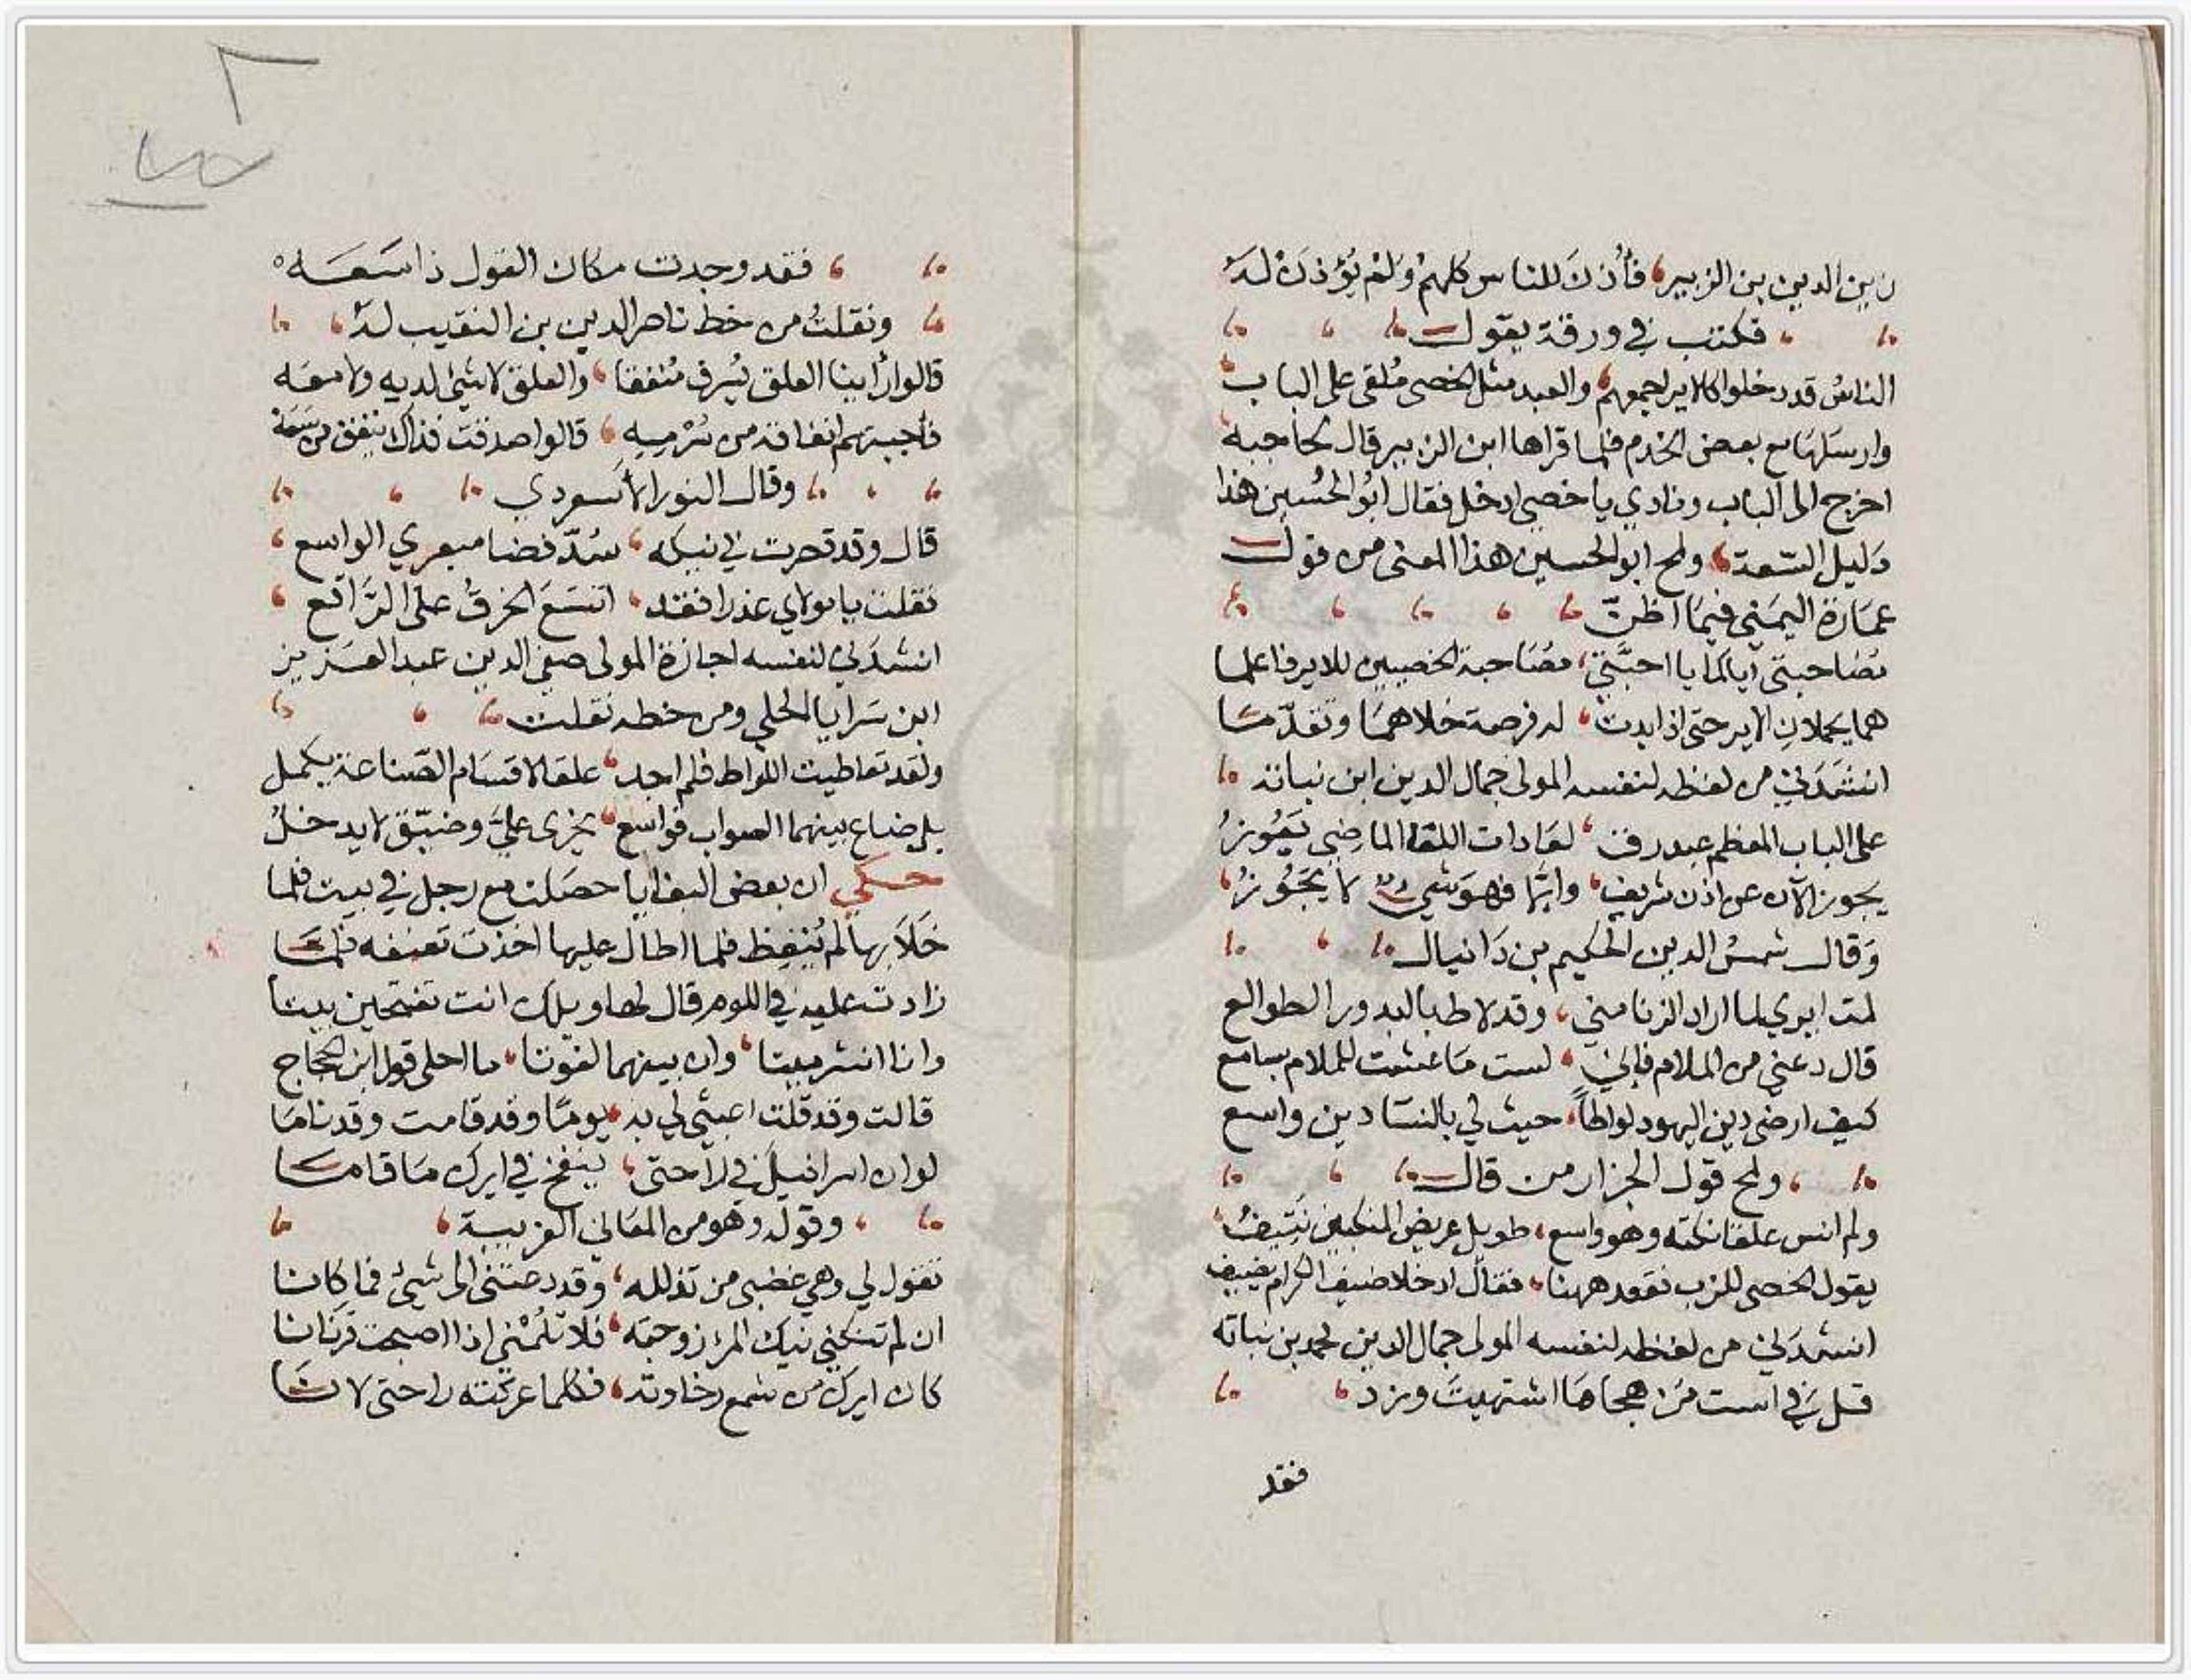 زين الدين بن الزبير، فأذن للناس كلهم ولم يؤذن له
فكتب في ورقة يقول
الناس قد دخلوا كالاير اجمعهم، والعبد مثل الخصى ملقى على الباب
وارسلها مع بعض الخدم فلما قراها ابن الزبير قال لحاجبه
اخرج الى الباب ونادي يا خصى ادخل فقال ابو الحسين هذا
دليل السعة، ولمح ابو الحسين هذا المعنى من قول
عمارة اليمني فيما اظن
مصاحبتى اياكما يا احبتي، مصاحبة الخصيين للاير فاعلما
هما يحملان الاير حتى اذا بدت، له فرصة خلاهما وتقدما
انشدني من لفظه لنفسه المولى جمال الدين ابن نباتة
على الباب المعظم عبد رق، لعادات اللقا الماضي يعوز
يجوز الآن عن اذن شريف، وايما فهو شي لا يجوز
وقال شمس الدين الحكيم بن دانيال
لمت ايري لما اراد الزنا مني، وقد لاط بالبدور الطوالع
قال دعني من الملام فاني، لست ما عشت للملام بسامع
كيف ارضى دين اليهود لواطاً، حيث لي بالنسا دين واسع
ولمح قول الجزار من قال
ولم انس علقا نكته وهو واسع، طويل عريض المنكبين نتيف
يقول الخصى للزب نقعد ههنا، فقال ادخلا ضيف الكرام يضيف
انشدني من لفظه لنفسه المولى جمال الدين محمد بن نباته
قل في است من هجاها اشتهيت وزد
فقد
٢
فقد وجدت مكان القول ذا سعه
ونقلت من خط ناصر الدين بن النقيب له
قالوا رأينا العلق يسرف منفقا، والعلق لا شئ لديه ولا معه
فأجبتهم انفاقه من سرميه، قالوا صدقت فذاك ينفق من سعة
وقال النور الأسعردي
قال وقد قصرت في نيكه، سد فضا مبعري الواسع
فقلت يا مولاي عذرا فقد، اتسع الخرق على الراقع
انشدني لنفسه اجازة المولى صفي الدين عبد العزيز
ابن سرايا الحلي ومن خطه نقلت
ولقد تعاطيت اللواط فلم اجد، علقا لاقسام الصناعة يكمل
بل ضاع بينهما الصواب فواسع، يخرى علي وضيق لا يدخل
حكي ان بعض البغايا حصلت مع رجل في بيت فلما
خلا بها لم ينعظ فلما اطال عليها اخذت تعنفه فلما
زادت عليه في اللوم قال لها ويلك انت تفتحين بيتا
وانا انشر ميتا، وان بينهما لفوتا، ما احلى قول ابن الحجاج
قالت وقد قلت اعبثي لي به، يوما وقد قامت وقد ناما
لو ان اسرافيل في راحتى، ينفخ في ايرك ما قاما
وقوله وهو من المعاني الغريبة
تقول لي وهي غضبى من تذلله، وقد دعتنى الى شئ فما كانا
ان لم تنكني نيك المرء زوجته، فلا تلمني اذا اصبحت قرنانا
كان ايرك من شمع رخاوته، فكلما عركته راحتى لانا